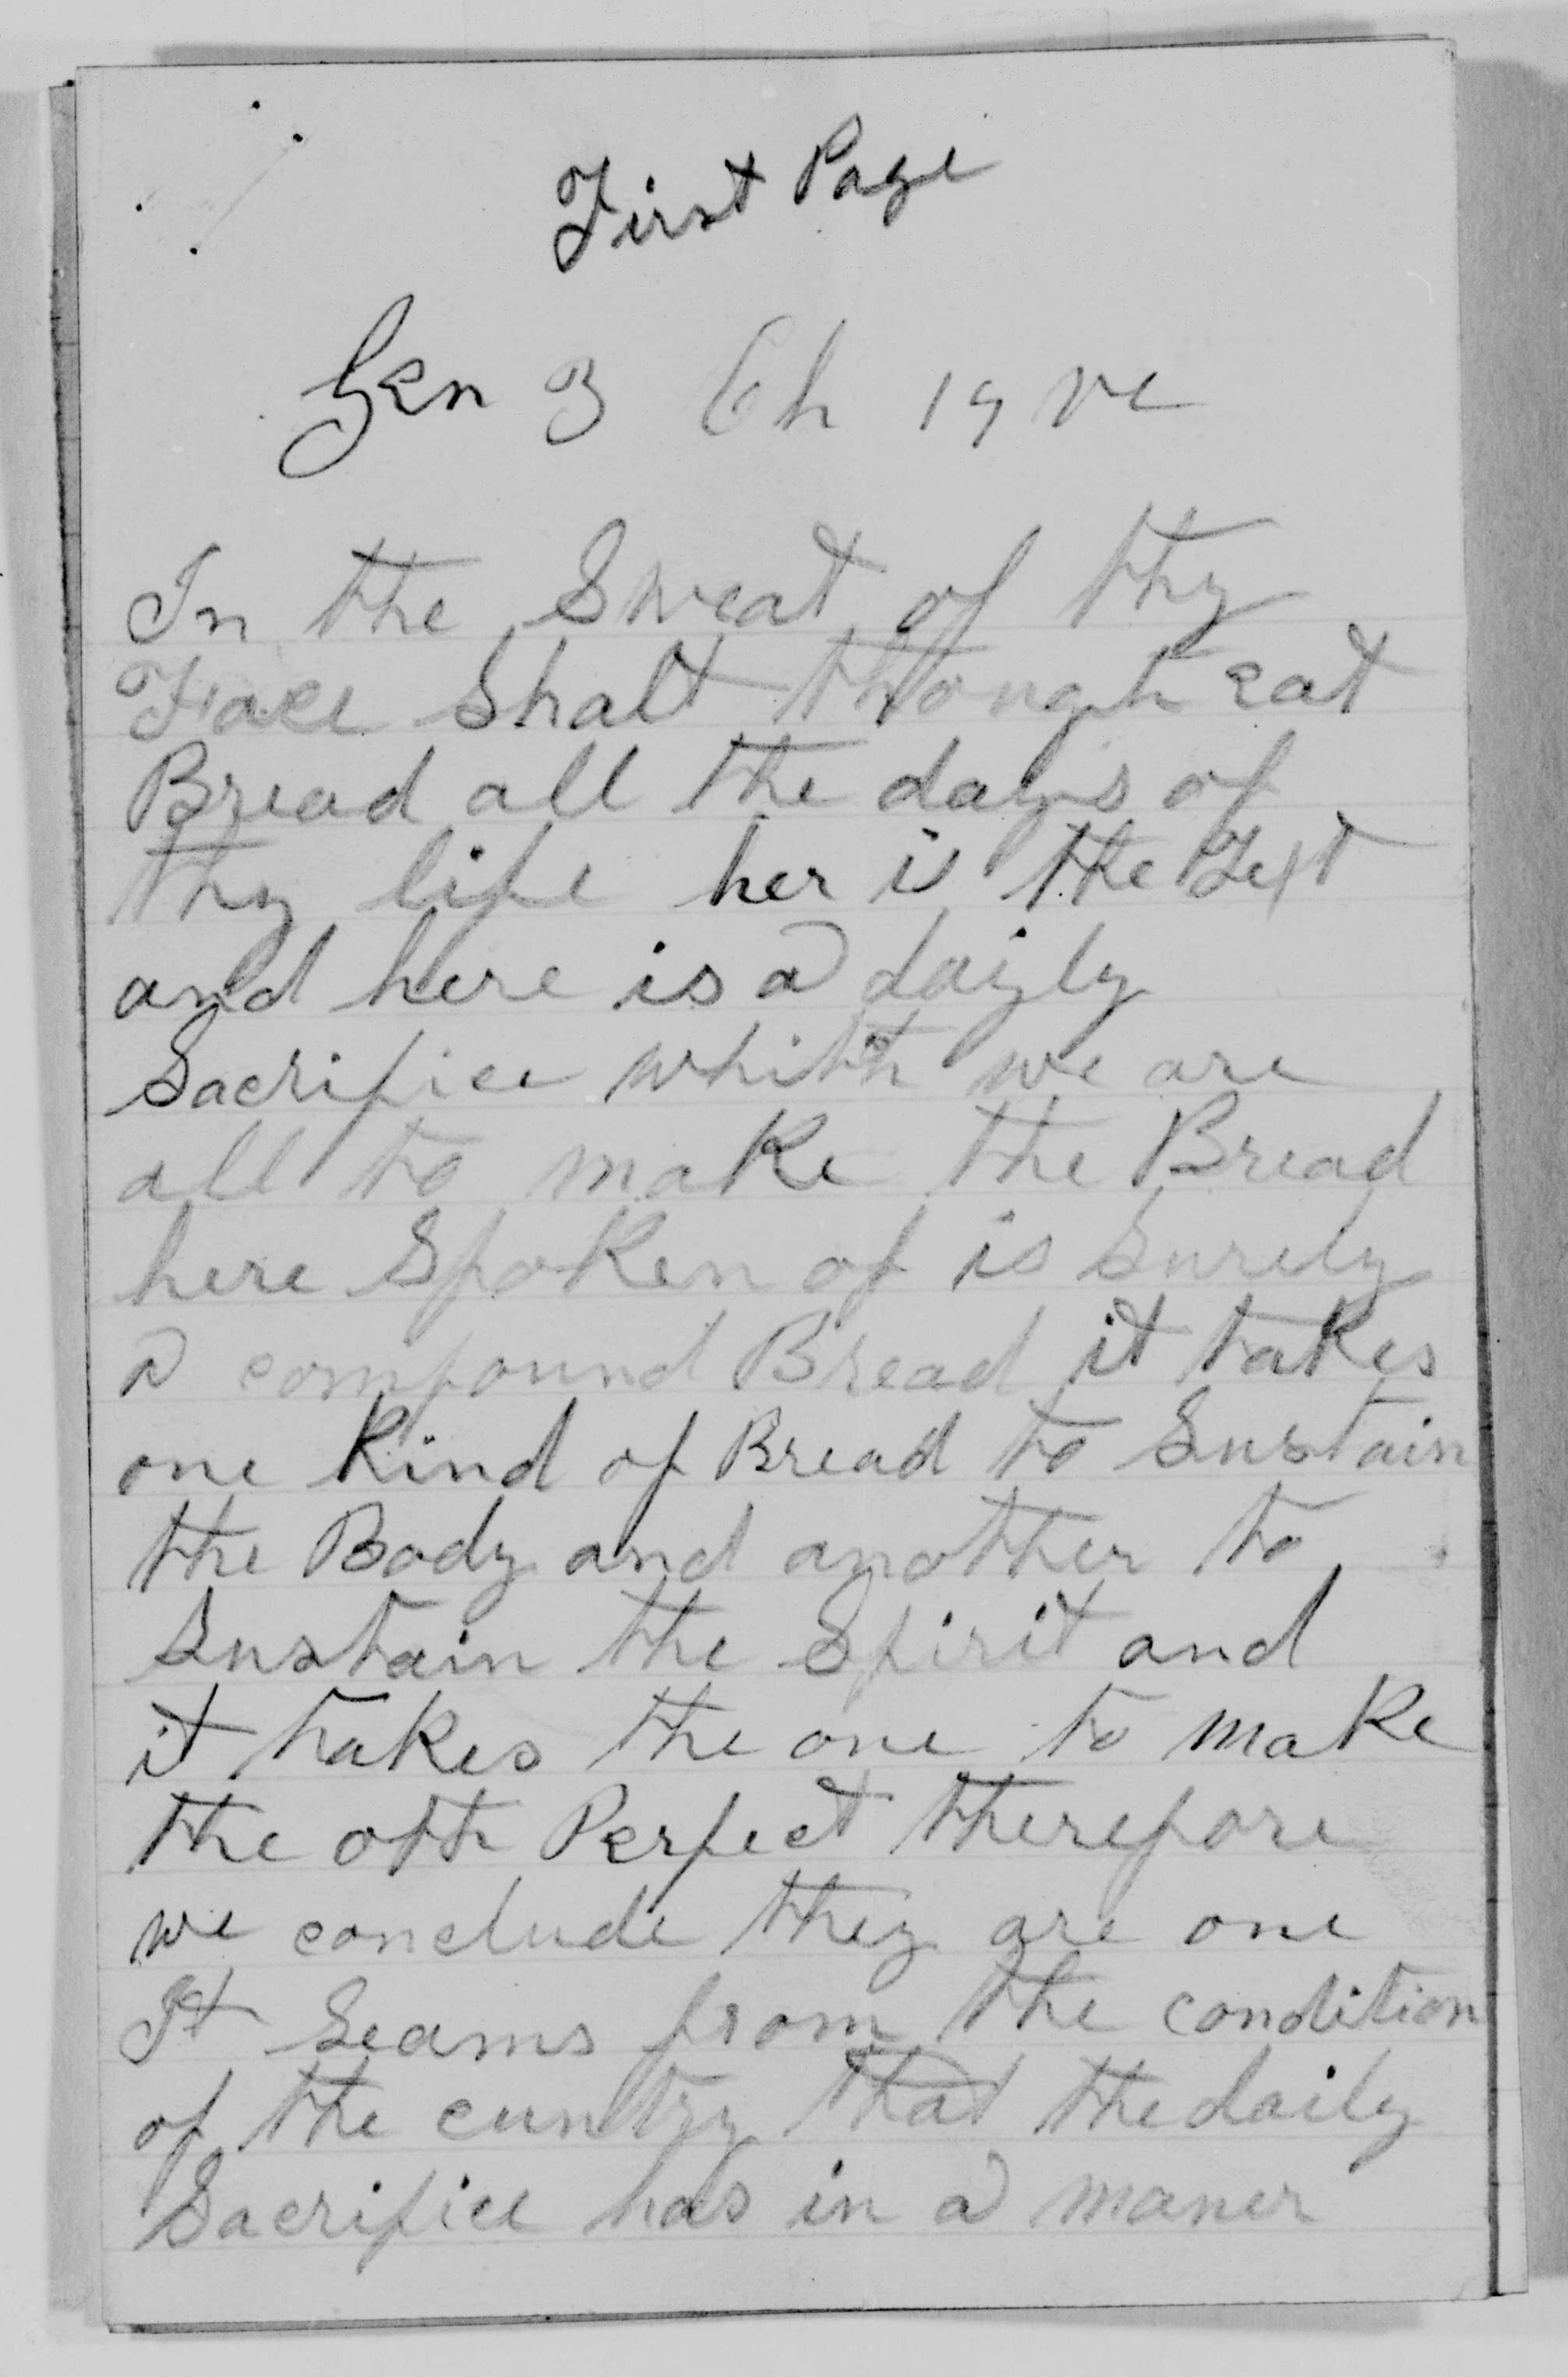 First Page
Gen 3 Ch 19 ve
In the Sweat of thy
Face Shalt though eat
Bread all the days of
thy life her is the Text
and here is a dayly
Sacrifice whitch we are
all to make the Bread
here Spoken of is Surely
a compound Bread it takes
one Kind of Bread to Sustain
the Body and another to
Sustain the Spirit and
it takes the one to make
the oth Perfect therefore
we conclude they are one
It Seams from the condition
of the cuntry that the daily
Sacrifice has in a maner